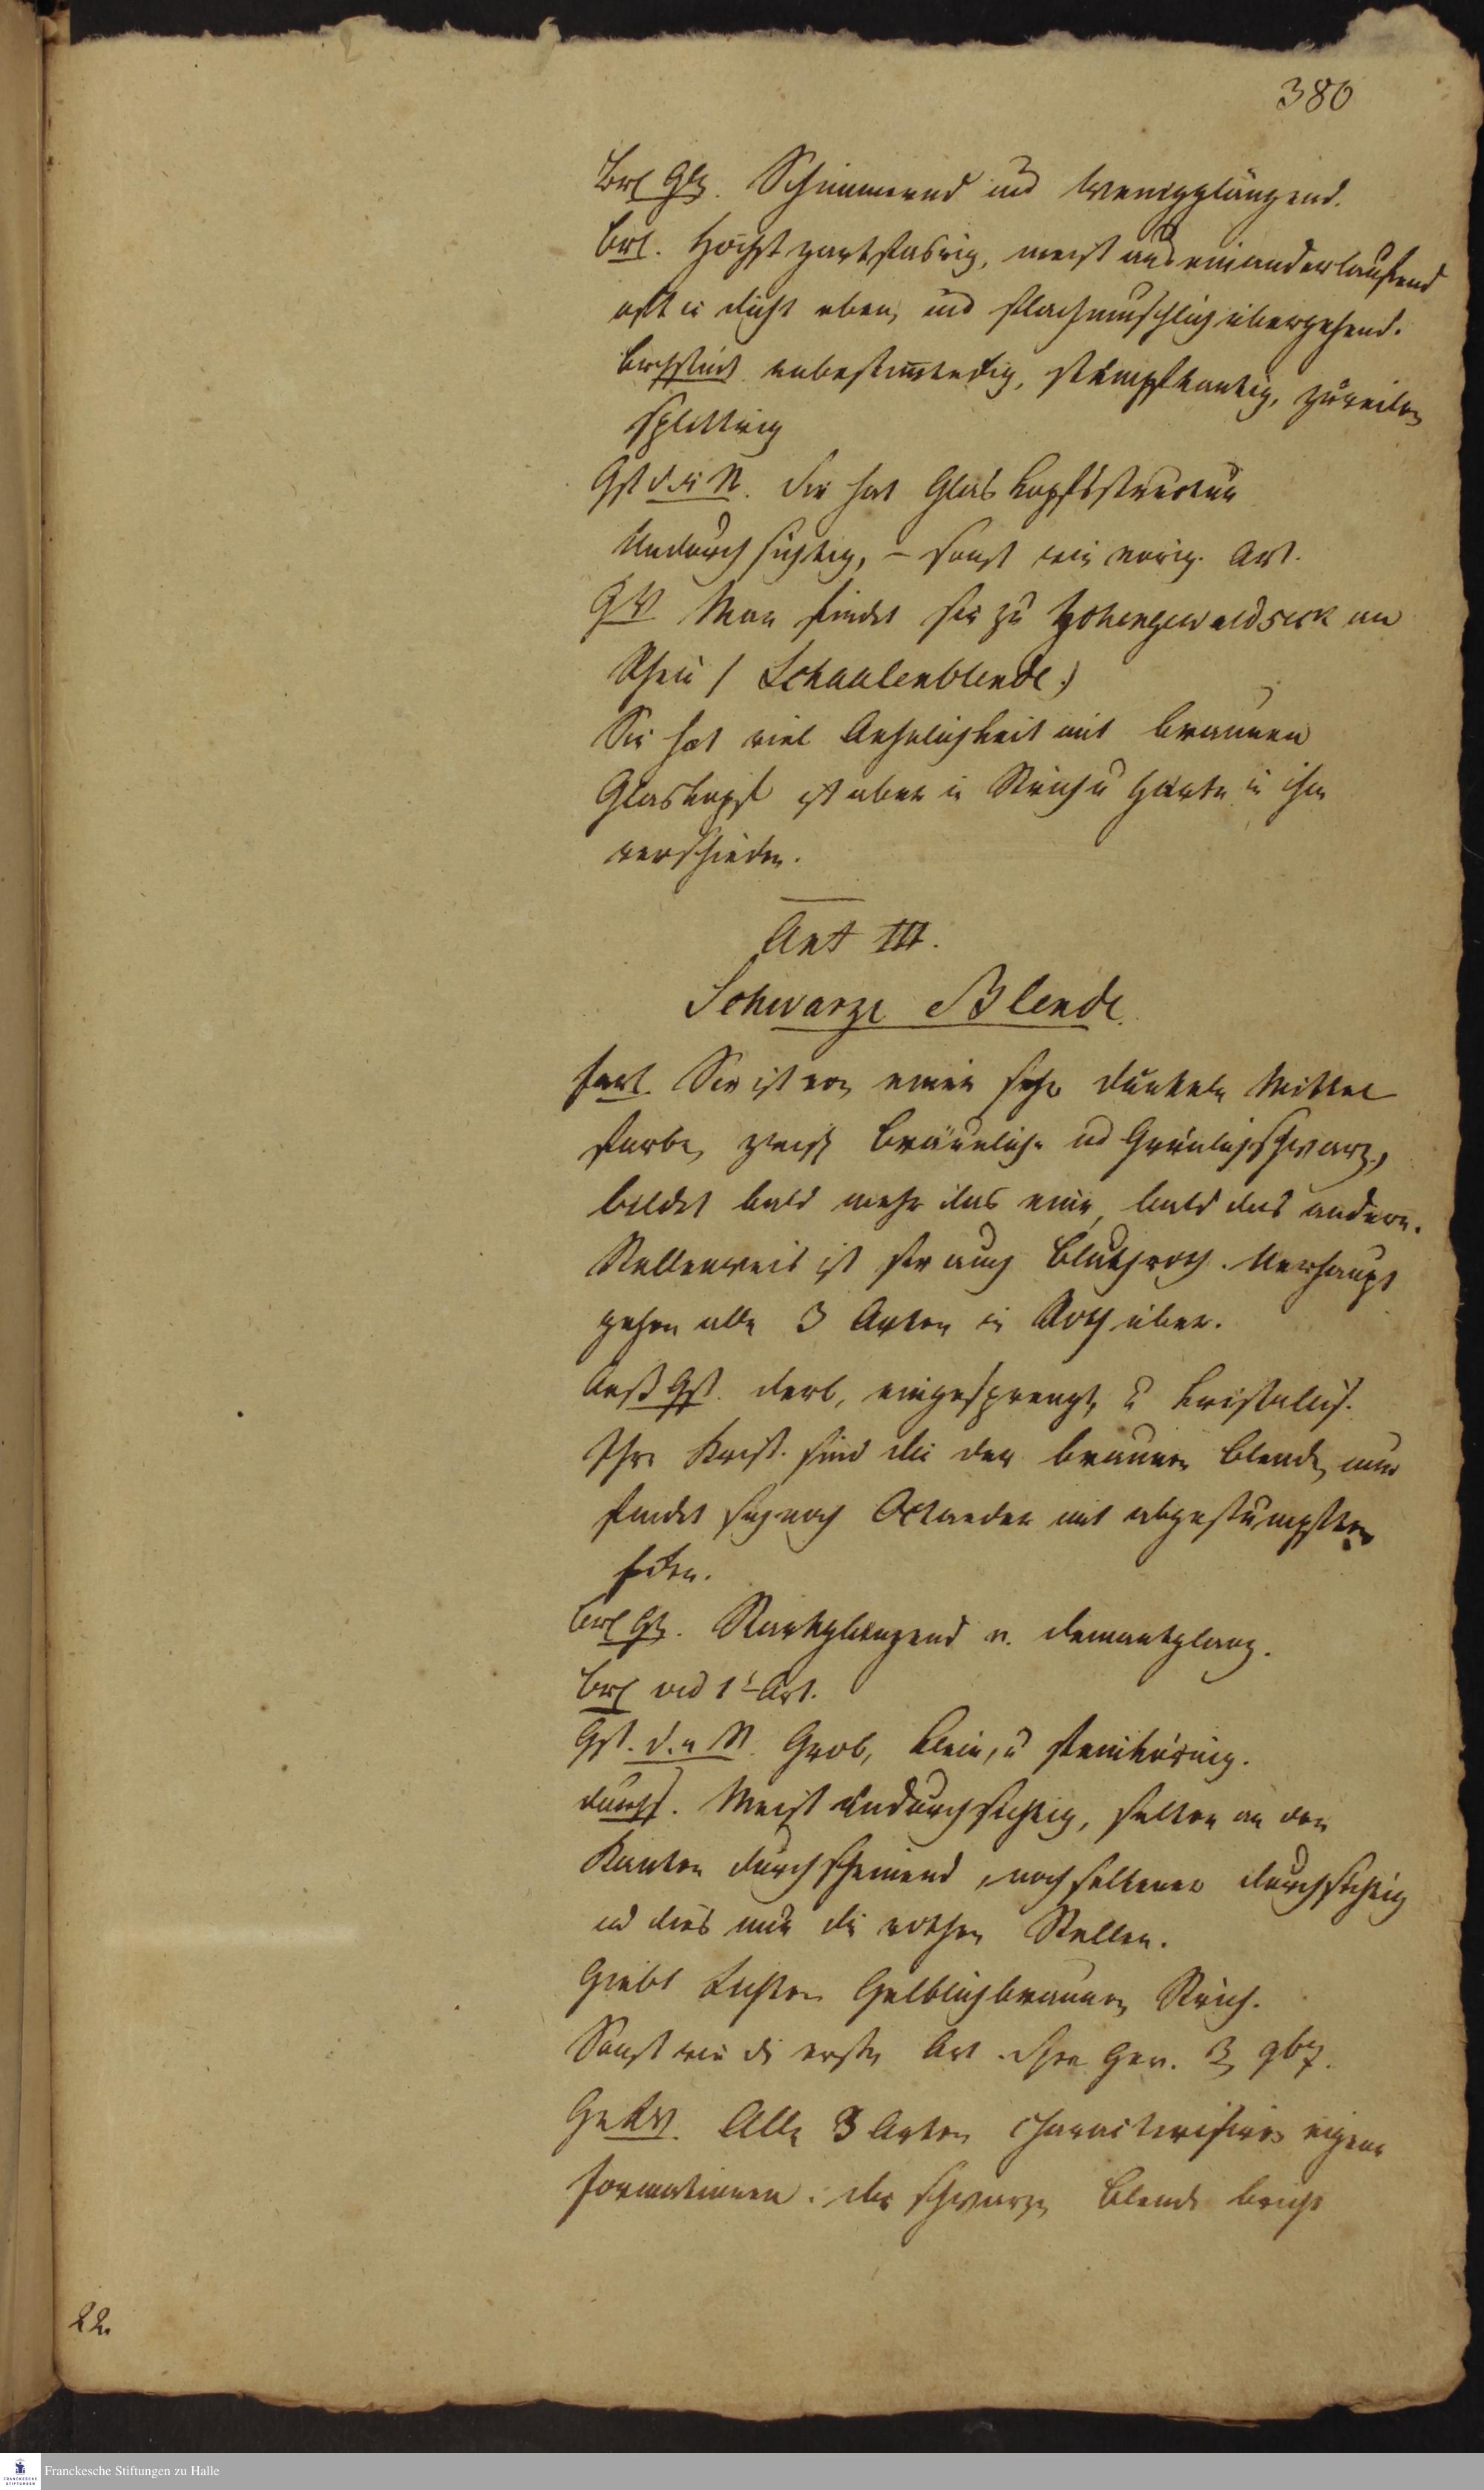 380
Brch Glz. Schimmernd und weniggläzend.
Brch. Höchst zartfasrig, meist aus einanderlaufend
oft in dicht eben, und flachmuschlich übergehend.
Brchstück unbestimteckig, stumpfkantig, zuweilen
splittrig
Gst d. a. St. Sie hat Glaskopfsstructur
Undurchsichtig, – sonst wie vorig. Art.
GO Man findet sie zu Hohengeroldseck am
Rhein / Schaalenblende.)
Sie hat viel Aehnlichkeit mit braunen
Glaskopf ist aber in Strich u Härte v ihm
verschieden.
Art III.
Schwarze Blende.
Farb. Sie ist von einer sehr dunkeln Mittel
farbe, zwisch bräunlich und Grünlichschwarz,
bildet bald mehr das eine, bald das andere.
Stellenweis ist sie auch Bluthroth. Uerhaupt
gehen alle 3 Arten in Roth über.
Aeß Gst. derb, eingesprengt, u kristallis.
Ihre Krist. sind die der braunen Blende, nur
findet sich noch Octaeder mit abgestumpften
Ecken.
Brch Glz. Starkglänzend v. demantglanz.
Brch vid 1t Art.
Gst. d. a St. Grob, klein, u feinkörnig.
durchs. Meist undurchsichtig, selten an den
Kanten durchscheinend, noch seltener durchsichtig
und dies nur die rothen Stellen.
Giebt lichten Gelblichbraunen Strich.
Sonst wie die erste Art.
Alle 3 Arten characterisiren eigene
Formationen. die schwarze Blende bricht
22.
Franckesche Stiftungen zu Halle
FRANCKESCHE STIFTUNGEN